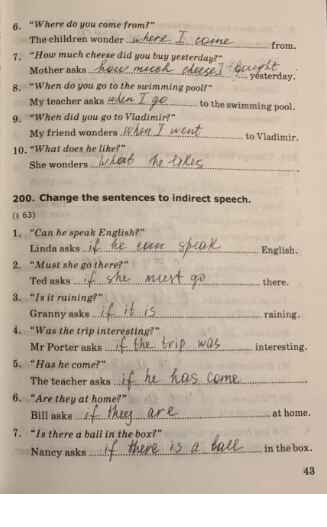 6. "Where do you come from?"
The children wonder where I come from.
7. "How much cheese did you buy yesterday?"
Mother asks how much cheese I bought yesterday.
8. "When do you go to the swimming pool?"
My teacher asks when I go to the swimming pool.
9. "When did you go to Vladimir?"
My friend wonders when I went to Vladimir.
10. "What does he like?"
She wonders what he likes
200. Change the sentences to indirect speech.
(§ 63)
1. "Can he speak English?"
Linda asks if he can speak English.
2. "Must she go there?"
Ted asks if she must go there.
3. "Is it raining?"
Granny asks if it is raining.
4. "Was the trip interesting?"
Mr Porter asks if the trip was interesting.
5. "Has he come?"
The teacher asks if he has come
6. "Are they at home?"
Bill asks if they are at home.
7. "Is there a ball in the box?"
Nancy asks if there is a ball in the box.
43